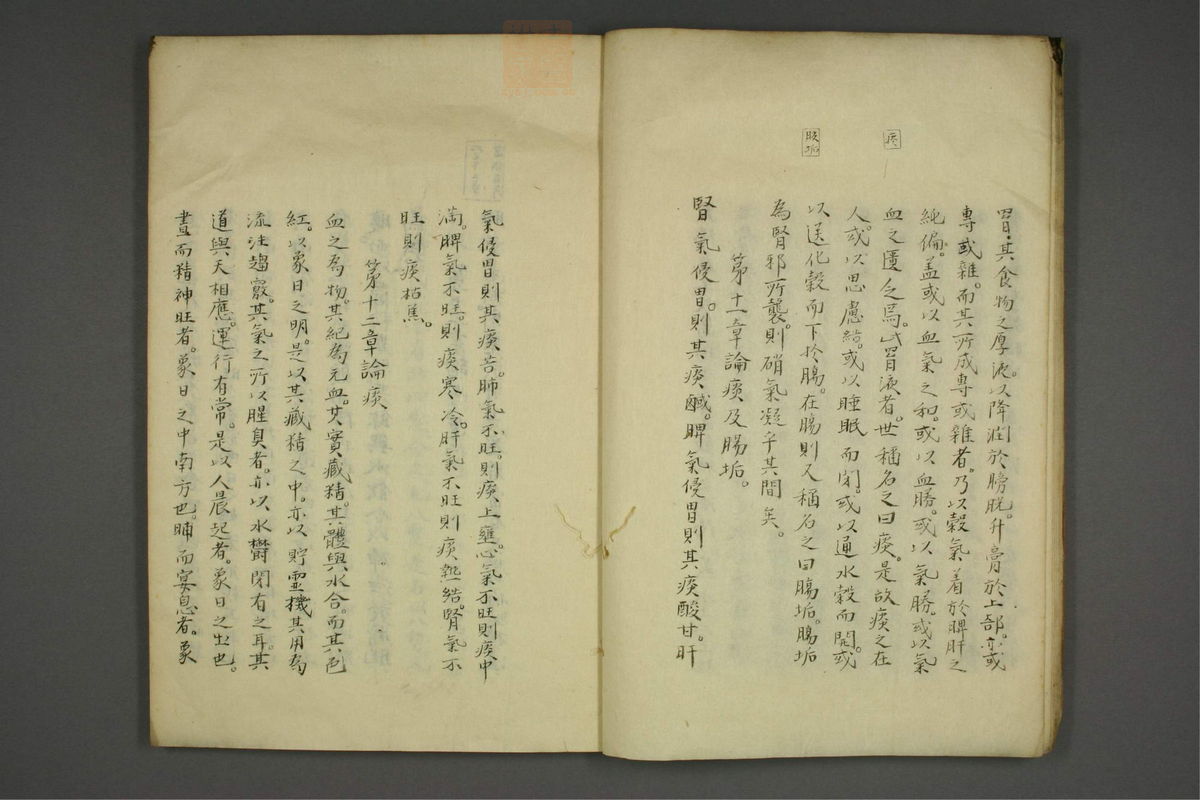 痰
腸垢
胃其食物之厚液以降潤於膀胱升膏於上部亦或
專或雜而其所成專或雜者乃以穀氣着於脾肝之
純偏蓋或以血氣之和或以血勝或以氣勝或以氣
血之匱乏焉此胃液者世稱名之曰痰是故痰之在
人或以思慮結或以睡眠而閉或以通水穀而開或
以送化穀而下於腸在腸則又稱名之曰腸垢腸垢
為腎邪所襲則硝氣凝乎其間矣
第十一章論痰及腸垢
腎氣侵胃則其痰鹹脾氣侵胃則其痰酸甘肝
氣侵胃則其痰苦肺氣不旺則痰上壅心氣不旺則痰中
滿脾氣不旺則痰寒冷肝氣不旺則痰熱結腎氣不
旺則痰枯焦
第十二章論痰
血之為物其紀為元血其實藏精其體與水合而其色
紅以象日之明是以其藏精之中亦以貯靈機其用為
流注趨竅其氣之所以腥臭者亦以水欝閉有之耳其
道與天相應運行有常是以人晨起者象日之出也
晝而精神旺者象日之中南方也晡而宴息者象